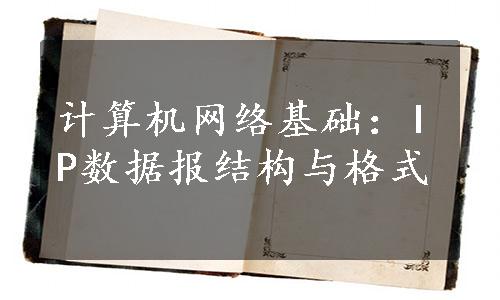 计算机网络基础：I
P数据报结构与格式